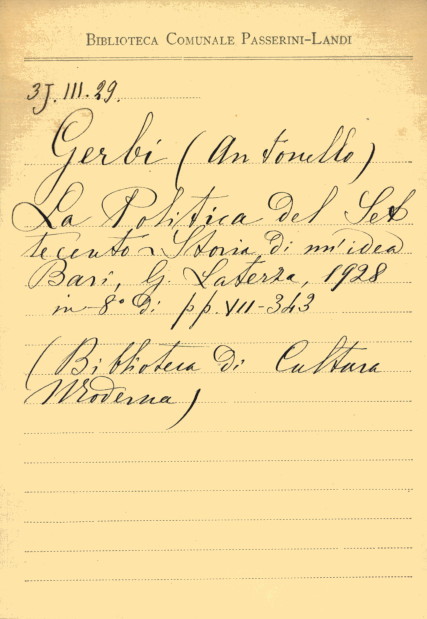 BIBLIOTECA COMUNALE PASSERINI-LANDI
3J.III.29.
Gerbi (Antonello)
La Politica del Set
tecento - Storia di un'idea
Bari, G. Laterza, 1928
in-8° di pp. VII-343
(Biblioteca di Cultura
Moderna)